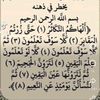 يخطر في ذهنه
بسم الله الرحمن الرحيم
﴿أَلْهَاكُمُ التَّكَاثُرُ (١) حَتَّى زُرْتُمُ
الْمَقَابِرَ (٢) كَلَّا سَوْفَ تَعْلَمُونَ (٣) ثُمَّ
كَلَّا سَوْفَ تَعْلَمُونَ (٤) كَلَّا لَوْ تَعْلَمُونَ
عِلْمَ الْيَقِينِ (٥) لَتَرَوُنَّ الْجَحِيمَ (٦)
ثُمَّ لَتَرَوُنَّهَا عَيْنَ الْيَقِينِ (٧) ثُمَّ
لَتُسْأَلُنَّ يَوْمَئِذٍ عَنِ النَّعِيمِ (٨)﴾